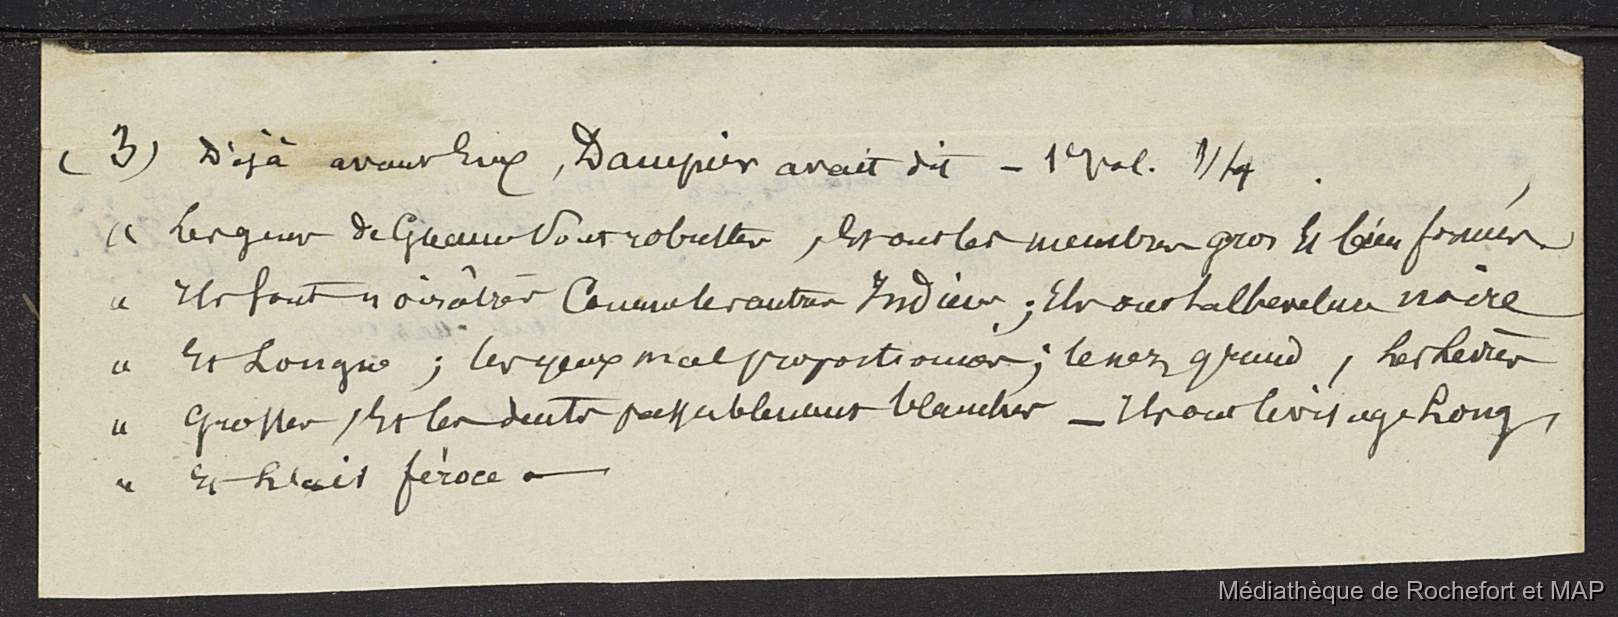 (3) Déjà avant Eux, Dampier avait dit - 1er Vol. 1/4.
" Les gens de Gueam Sont robustes, Et ont les membres gros Et bien formés.
" Ils sont noirâtres Comme les autres Indiens ; Ils ont la chevelure noire
" Et Longue ; les yeux mal proportionnés ; le nez grand, Les Levres
" Grosses, Et les dents passablement blanches - Ils ont le visage Long,
" Et L'air féroce -
Médiathèque de Rochefort et MAP